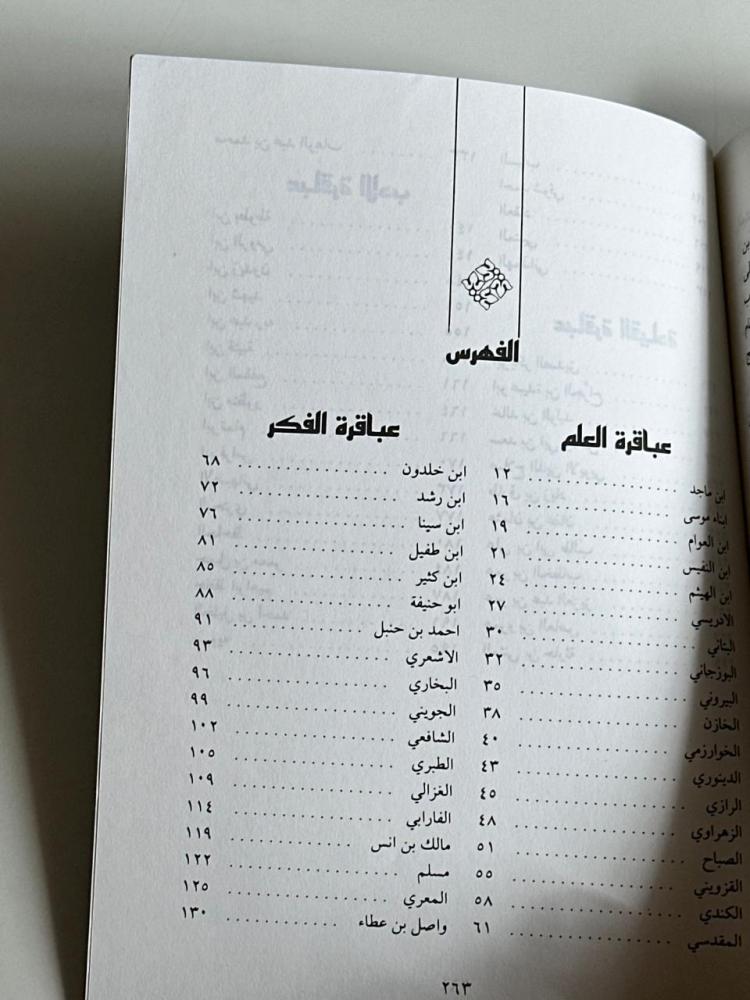 الفهرس
عباقرة العلم
ابن ماجد ........................ ١٢
ابناء موسى ........................ ١٦
ابن العوام ........................ ١٩
ابن النفيس ........................ ٢١
ابن الهيثم ........................ ٢٤
الادريسي ........................ ٢٧
البتاني ........................ ٣٠
البوزجاني ........................ ٣٢
البيروني ........................ ٣٥
الخازن ........................ ٣٨
الخوارزمي ........................ ٤٠
الدينوري ........................ ٤٣
الرازي ........................ ٤٥
الزهراوي ........................ ٤٨
الصباح ........................ ٥١
القزويني ........................ ٥٥
الكندي ........................ ٥٨
المقدسي ........................ ٦١
عباقرة الفكر
ابن خلدون ................ ٦٨
ابن رشد ................ ٧٢
ابن سينا ................ ٧٦
ابن طفيل ................ ٨١
ابن كثير ................ ٨٥
ابو حنيفة ................ ٨٨
احمد بن حنبل ................ ٩١
الاشعري ................ ٩٣
البخاري ................ ٩٦
الجويني ................ ٩٩
الشافعي ................ ١٠٢
الطبري ................ ١٠٥
الغزالي ................ ١٠٩
الفارابي ................ ١١٤
مالك بن انس ................ ١١٩
مسلم ................ ١٢٢
المعري ................ ١٢٥
واصل بن عطاء ................ ١٣٠
٢٦٣